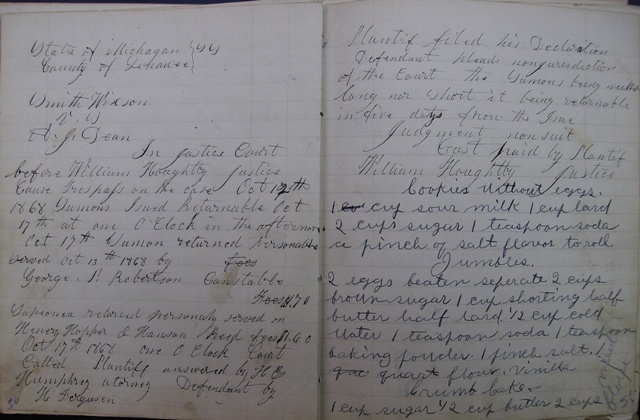 State of Michagan } SS
County of Lenawee
Smith Wixson
V S
A. J. Dean
In Justice Court
before William Houghtby Justice
Cause Trespass on the case Oct 12th
1868 Sumons Isued Returnable Oct
17th at one O Clock in the afternoon
Oct 17th Sumon returned personally
Served Oct 13th 1868 by fees
George S. Robertson Constable
Fees
returned personaly served on
Henry Hopper & Hanson Breed fees
Oct 17th 1868 one O Clock Court
Called Plantiff answered by H C
Humphrey atorney Defendant by
H Ferguson
Plantif filed his Declaration
Defendant pleads nonjurisdiction
of the Court the Sumons being neither
long nor short it being returnable
in five days from the Isue
Judgment nonsuit
Cost paid by Plantif
William Houghtby Justice
Cookies without eggs.
1 cup sour milk 1 cup lard
2 cups sugar 1 teaspoon soda
a pinch of salt flavor to roll
Jumbles.
2 eggs beaten seperate 2 cups
broun sugar 1 cup shorting half
butter half lard 1/2 cup cold
water 1 teaspoon soda 1 teaspoon
baking powder 1 pinch salt. 1
quart flour. vanilla
Crumb cake
1 cup sugar 1/2 cup butter 2 cups